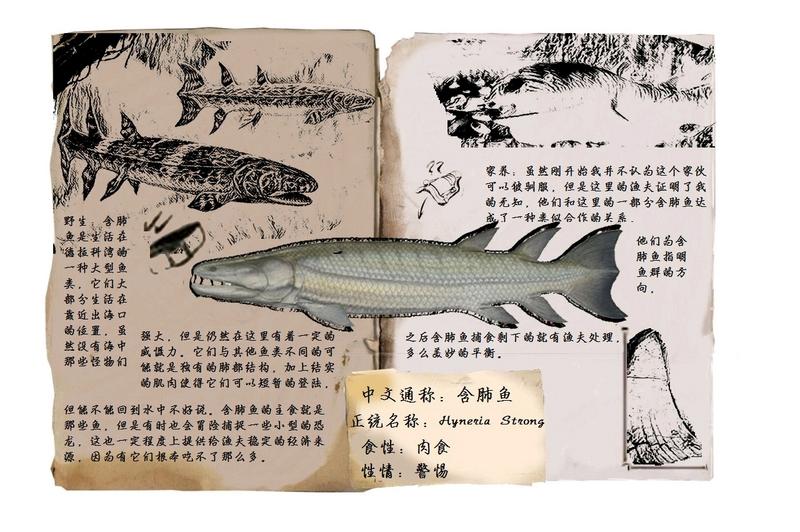 野生：含肺
鱼是生活在
德拉科湾的
一种大型鱼
类，它们大
部分生活在
靠近出海口
的位置，虽
然没有海中
那些怪物们
强大，但是仍然在这里有着一定的
威慑力。它们与其他鱼类不同的可
能就是独有的肺部结构，加上结实
的肌肉使得它们可以短暂的登陆，
但能不能回到水中不好说。含肺鱼的主食就是
那些鱼，但是有时也会冒险捕捉一些小型的恐
龙，这也一定程度上提供给渔夫稳定的经济来
源，因为有它们根本吃不了那么多。
家养：虽然刚开始我并不认为这个家伙
可以被驯服，但是这里的渔夫证明了我
的无知，他们和这里的一部分含肺鱼达
成了一种类似合作的关系.
??
他们为含
肺鱼指明
鱼群的方
向，
之后含肺鱼捕食剩下的就有渔夫处理，
多么美妙的平衡。
中文通称：含肺鱼
正统名称：Hyneria Strong
食性：肉食
性情：警惕